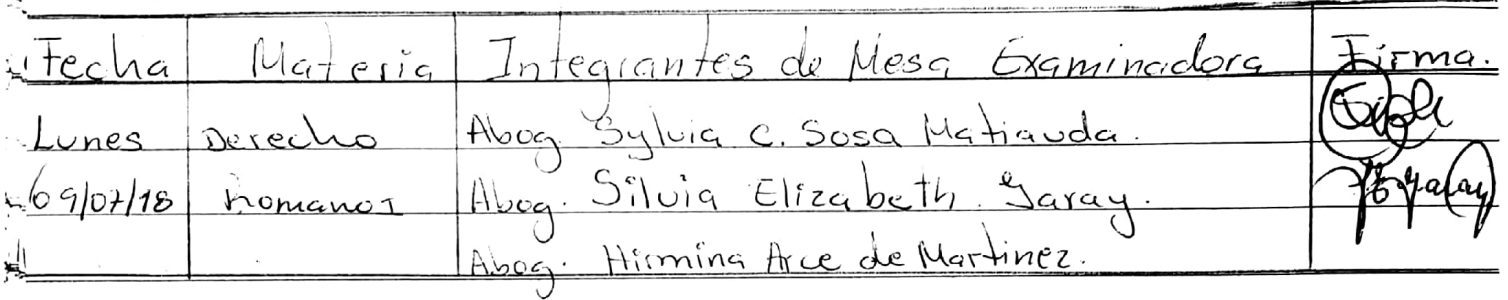 Fecha Materia Integrantes de Mesa Examinadora Firma.
Lunes Derecho Abog. Sylvia C. Sosa Matiauda.
09/07/18 Romano I Abog. Silvia Elizabeth Garay.
Abog. Hirmina Arce de Martinez.